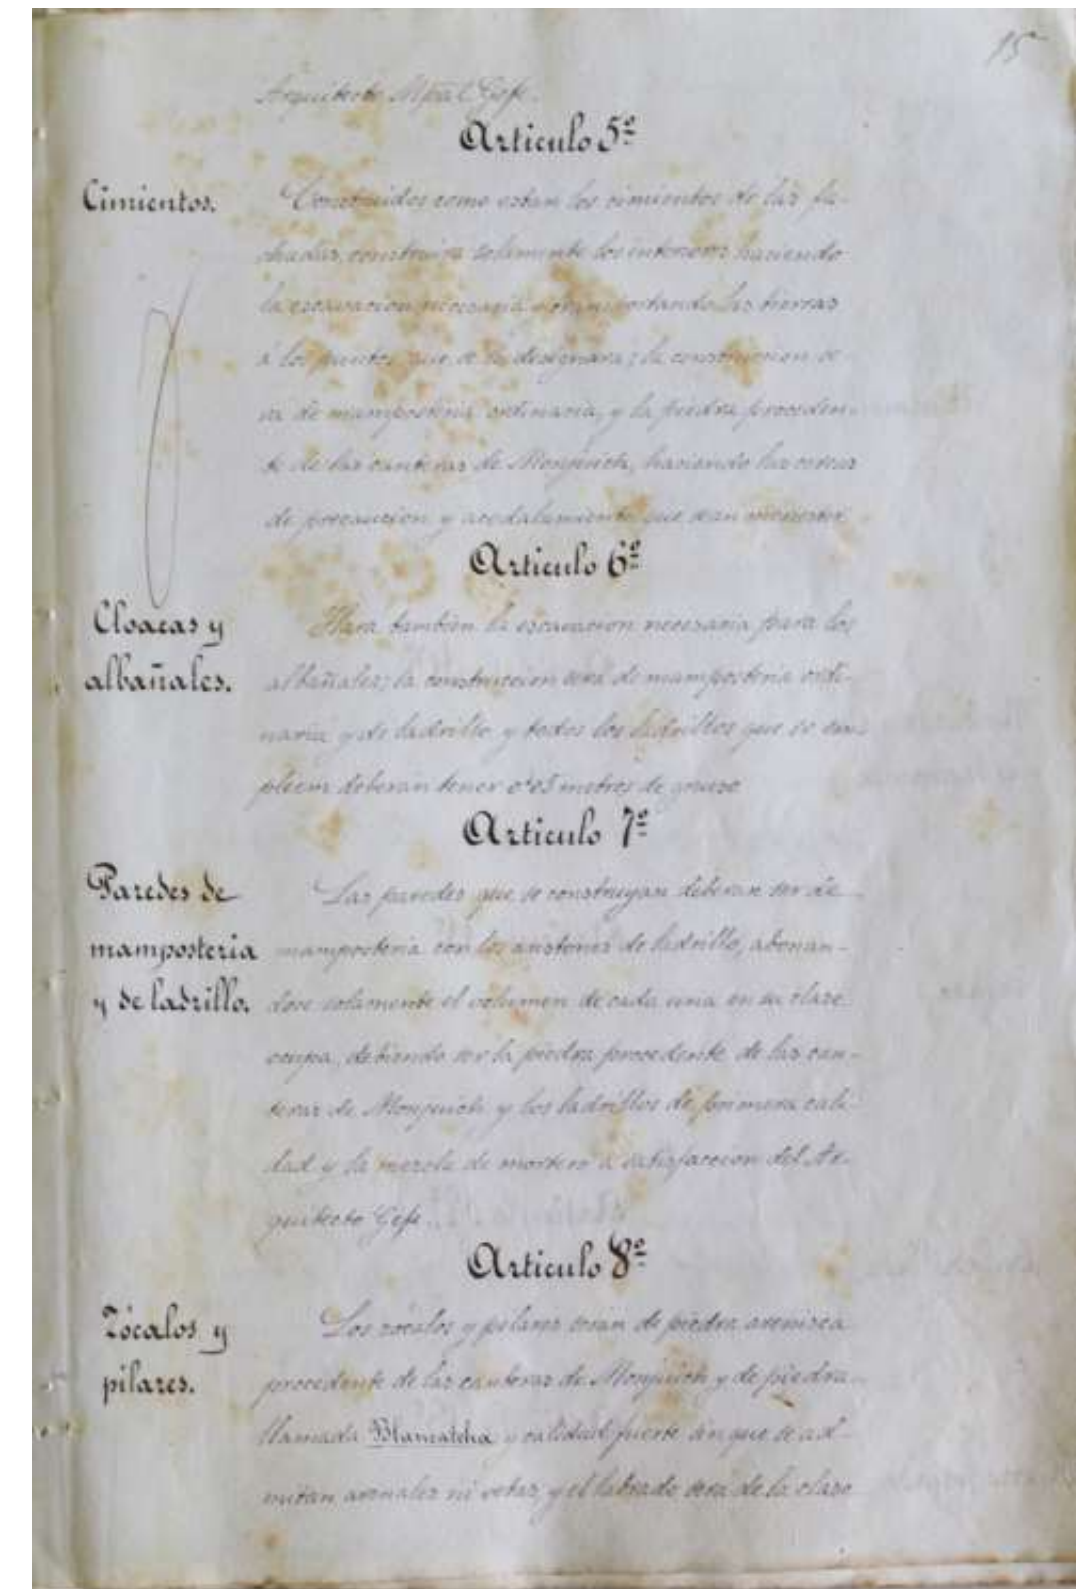 15
Arquitecto Mpal Gefe.
Articulo 5º
Cimientos.
Construidos como estan los cimientos de las fa-
chadas, construira solamente los interiores haciendo
la escavacion necesaria y transportando las tierras
á los puntos que se le designará; la construccion se-
rá de mamposteria ordinaria, y la piedra proceden-
te de las canteras de Monjuich, haciendo las
de precaucion y que sean menester
Articulo 6º
Cloacas y
albañales.
Hará tambien la escavacion necesaria para los
albañales; la construccion será de mamposteria ordi-
naria y de ladrillo y todos los ladrillos que se em-
pleen deberán tener 0m05 metros de grueso
Articulo 7º
Paredes de
mamposteria
y de ladrillo.
Las paredes que se construyan deberan ser de
mamposteria con los de ladrillo, abonan-
dose solamente el volumen de cada una en su clase
ocupa, debiendo ser la piedra procedente de las can-
teras de Monjuich y los ladrillos de primera cali-
dad y la mezcla de mortero á satisfaccion del Ar-
quitecto Gefe.
Articulo 8º
Zócalos y
pilares.
Los zócalos y pilares seran de piedra arenisca
procedente de las canteras de Monjuich y de piedra
llamada Blancatcha y calidad fuerte sin que se ad-
mitan arenales ni vetas, y el labrado será de la clase